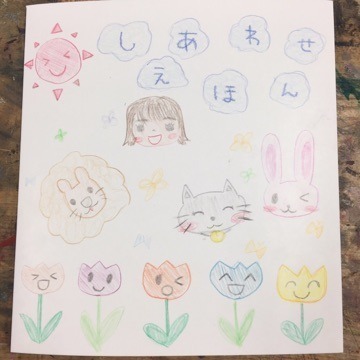 しあわせ
えほん